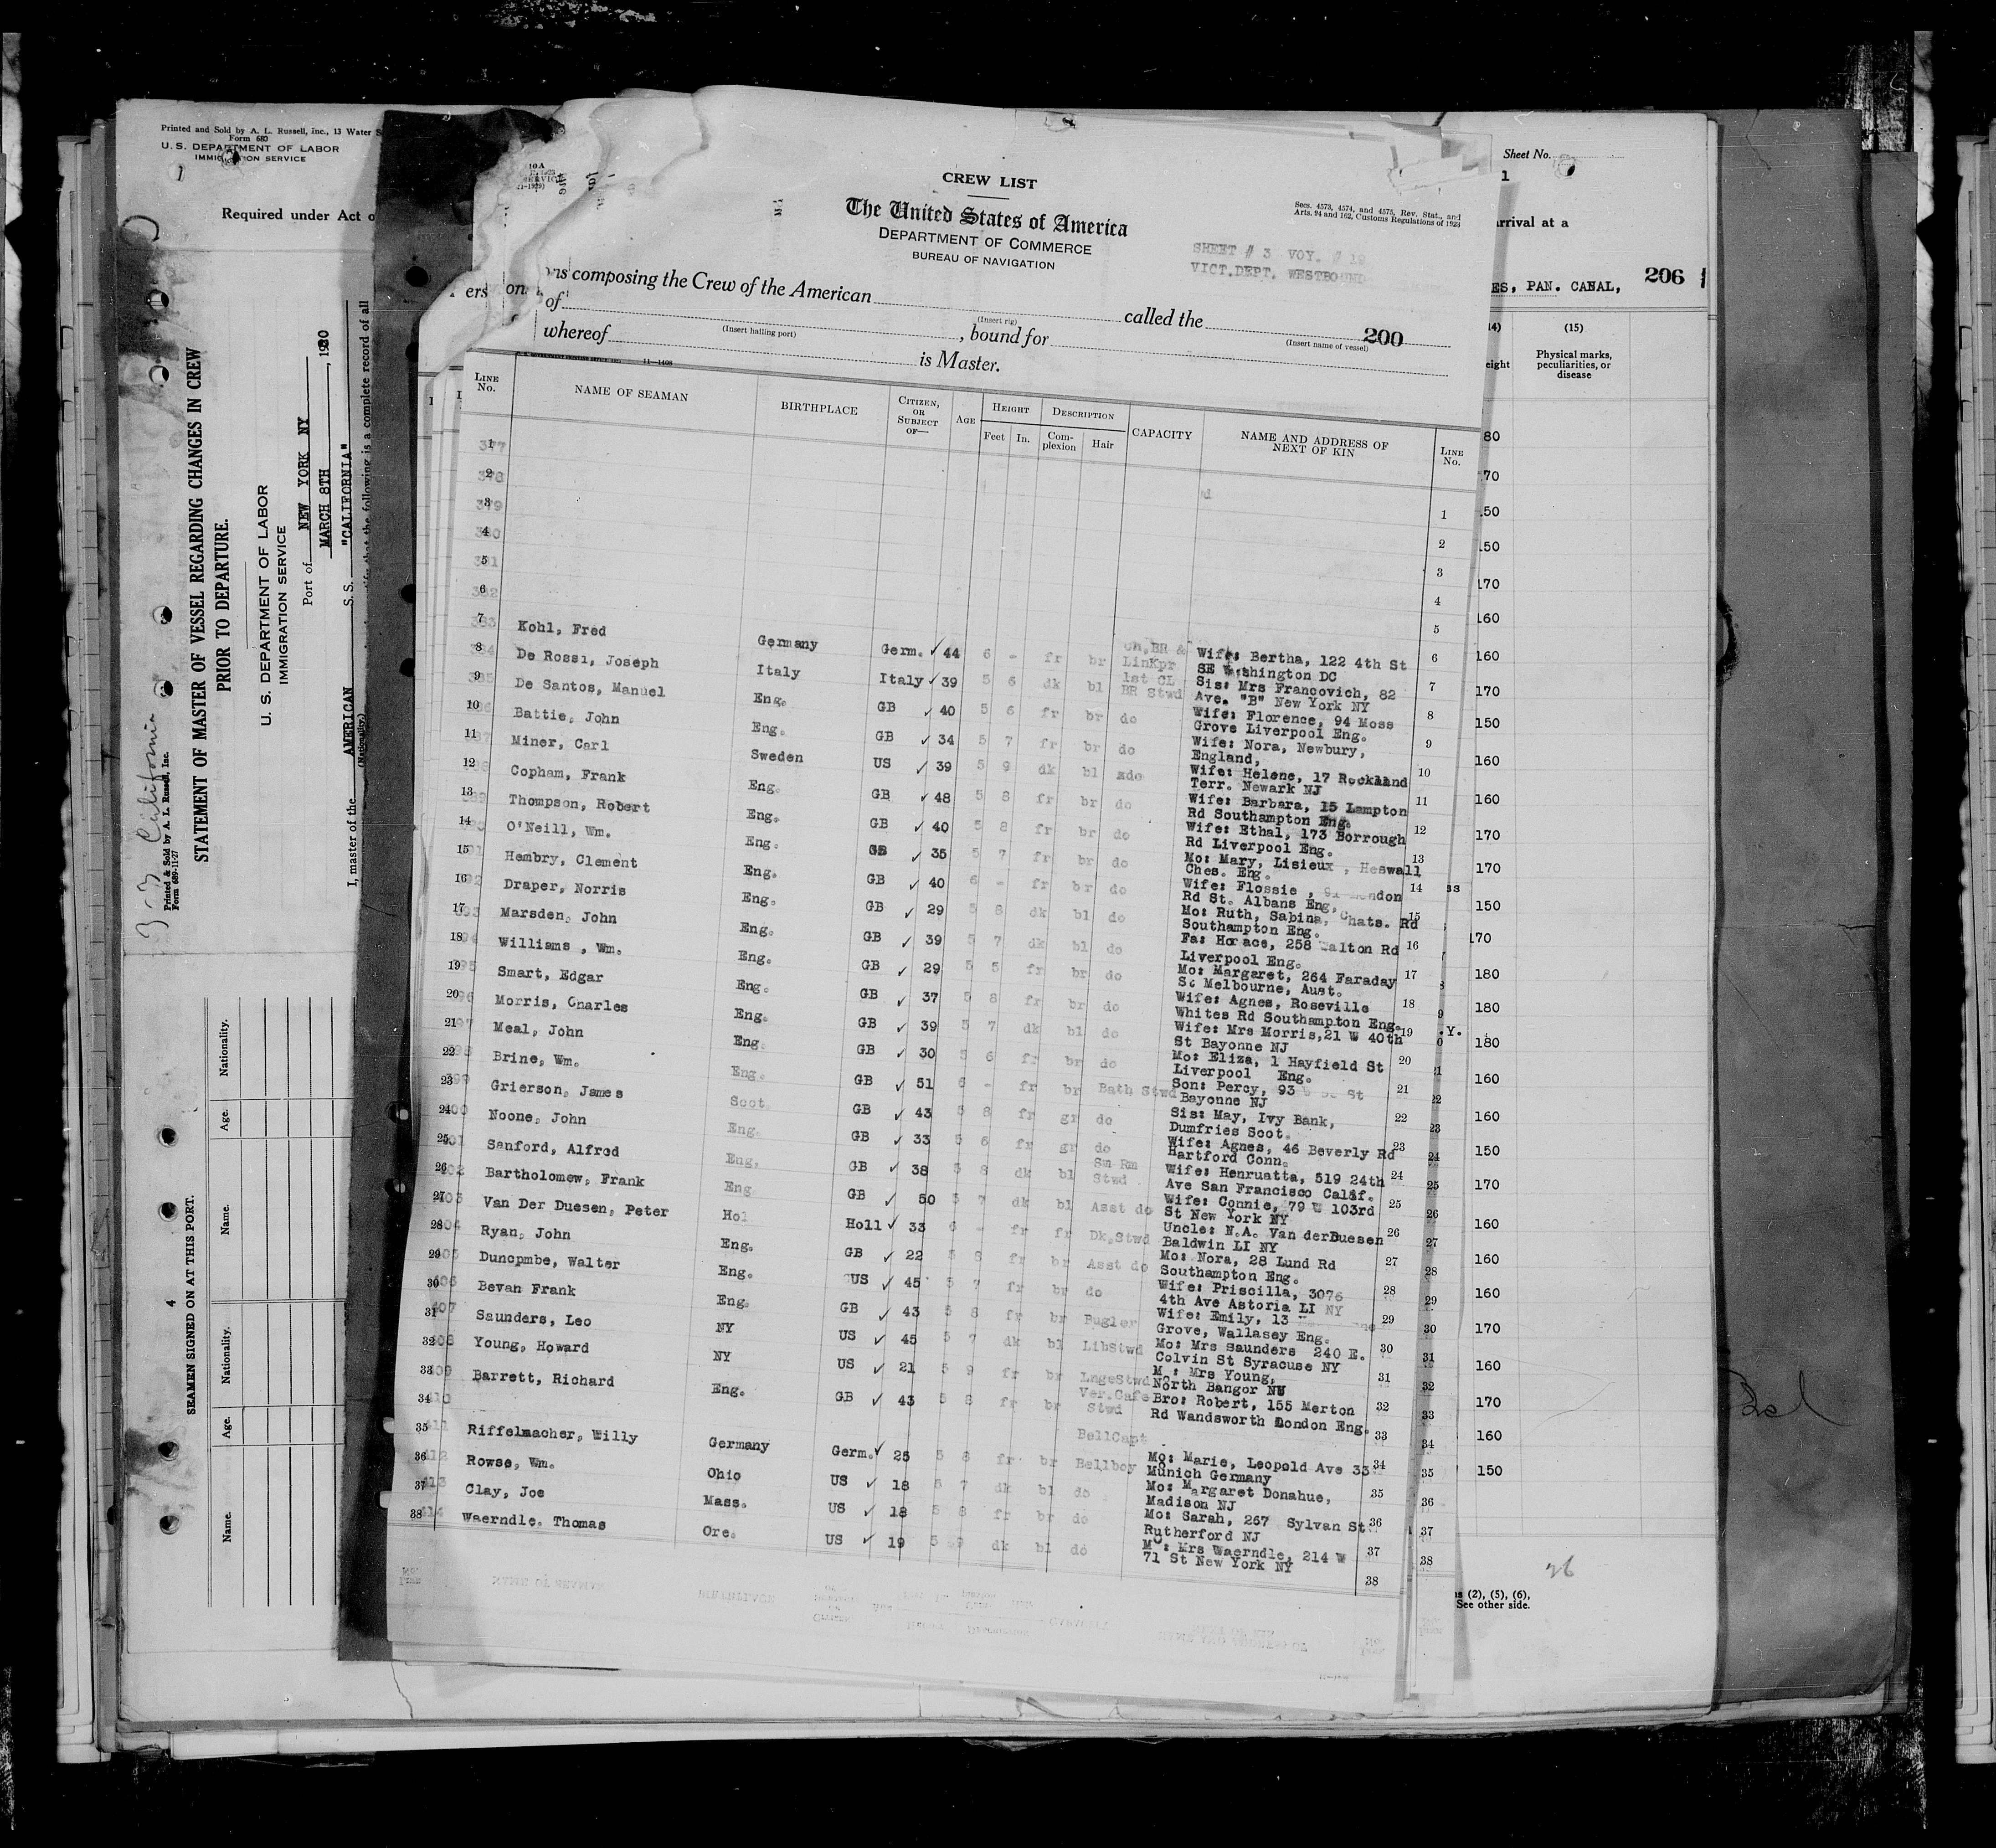 Printed and Sold by A. L. Russell, Inc., 13 Water
Form 680
U. S. DEPARTMENT OF LABOR
IMMIGRATION SERVICE
Required under Act o
3-23 California
Printed & Sold by A. L. Russell, Inc.
Form 689-11-27
STATEMENT OF MASTER OF VESSEL REGARDING CHANGES IN CREW
PRIOR TO DEPARTURE.
U. S. DEPARTMENT OF LABOR
IMMIGRATION SERVICE
Port of NEW YORK NY
MARCH 8TH , 1930
I, master of the AMERICAN S. S. "CALIFORNIA"
(Nationality.)
that the following is a complete record of all
4 SEAMEN SIGNED ON AT THIS PORT.
Name. Age. Nationality. Name. Age. Nationality.
CREW LIST
The United States of America
DEPARTMENT OF COMMERCE
BUREAU OF NAVIGATION
Secs. 4573, 4574, and 4575, Rev. Stat., and
Arts. 94 and 162, Customs Regulations of 1923
SHEET # 3 VOY. # 19
VICT.DEPT. WESTBOUND
composing the Crew of the American called the 200
(Insert rig) (Insert name of vessel)
of , bound for
(Insert hailing port)
whereof is Master.
11—1408
LINE No. NAME OF SEAMAN BIRTHPLACE CITIZEN, OR SUBJECT OF— AGE HEIGHT Feet In. DESCRIPTION Complexion Hair CAPACITY NAME AND ADDRESS OF NEXT OF KIN LINE No.
1
2
3
4
5
6
7 Kohl, Fred Germany Germ. ✓ 44 6 - fr br Ch.BR & LinKpr Wife: Bertha, 122 4th St SE Washington DC
8 De Rossi, Joseph Italy Italy ✓ 39 5 6 dk bl 1st CL BR Stwd Sis: Mrs Francovich, 82 Ave. "B" New York NY
9 De Santos, Manuel Eng. GB ✓ 40 5 6 fr br do Wife: Florence, 94 Moss Grove Liverpool Eng.
10 Battie, John Eng. GB ✓ 34 5 7 fr br do Wife: Nora, Newbury, England,
11 Miner, Carl Sweden US ✓ 39 5 9 dk bl do Wife: Helene, 17 Rockland Terr. Newark NJ
12 Copham, Frank Eng. GB ✓ 48 5 8 fr br do Wife: Barbara, 15 Lampton Rd Southampton Eng.
13 Thompson, Robert Eng. GB ✓ 40 5 8 fr br do Wife: Ethal, 173 Borrough Rd Liverpool Eng.
14 O'Neill, Wm. Eng. GB ✓ 35 5 7 fr br do Mo: Mary, Lisieux , Heswall Ches. Eng.
15 Hembry, Clement Eng. GB ✓ 40 6 - fr br do Wife: Flossie , Rd St. Albans Eng.
16 Draper, Norris Eng. GB ✓ 29 5 8 dk bl do Mo: Ruth, Sabina, Chats. Rd Southampton Eng.
17 Marsden, John Eng. GB ✓ 39 5 7 dk bl do Fa: Horace, 258 Walton Rd Liverpool Eng.
18 Williams , Wm. Eng. GB ✓ 29 5 5 fr br do Mo: Margaret, 264 Faraday St Melbourne, Aust.
19 Smart, Edgar Eng. GB ✓ 37 5 8 fr br do Wife: Agnes, Roseville Whites Rd Southampton Eng.
20 Morris, Charles Eng. GB ✓ 39 5 7 dk bl do Wife: Mrs Morris,21 W 40th St Bayonne NJ
21 Meal, John Eng. GB ✓ 30 5 6 fr br do Mo: Eliza, 1 Hayfield St Liverpool Eng.
22 Brine, Wm. Eng. GB ✓ 51 6 - fr br Bath Stwd Son: Percy, 93 St Bayonne NJ
23 Grierson, James Scot GB ✓ 43 5 8 fr gr do Sis: May, Ivy Bank, Dumfries Scot.
24 Noone, John Eng. GB ✓ 33 5 6 fr gr do Wife: Agnes, 46 Beverly Rd Hartford Conn.
25 Sanford, Alfred Eng. GB ✓ 38 5 8 dk bl Sm Rm Stwd Wife: Henruatta, 519 24th Ave San Francisco Calif.
26 Bartholomew, Frank Eng GB ✓ 50 5 7 dk bl Asst do Wife: Connie, 79 W 103rd St New York NY
27 Van Der Duesen, Peter Hol Holl ✓ 33 6 - fr fr Dk.Stwd Uncle: N.A. Van derDuesen Baldwin LI NY
28 Ryan, John Eng. GB ✓ 22 5 8 fr br Asst do Mo: Nora, 28 Lund Rd Southampton Eng.
29 Duncpmbe, Walter Eng. US ✓ 45 5 7 fr br do Wife: Priscilla, 3076 4th Ave Astoria LI NY
30 Bevan Frank Eng. GB ✓ 43 5 8 fr br Bugler Wife: Emily, 13 Grove, Wallasey Eng.
31 Saunders, Leo NY US ✓ 45 5 7 dk bl LibStwd Mo: Mrs Saunders 240 E. Colvin St Syracuse NY
32 Young, Howard NY US ✓ 21 5 9 fr br LngeStwd M : Mrs Young, North Bangor NY
33 Barrett, Richard Eng. GB ✓ 43 5 8 fr br Ver.Cafe Stwd Bro: Robert, 155 Merton Rd Wandsworth London Eng.
34 BellCapt
35 Riffelmacher, Willy Germany Germ. ✓ 25 5 8 fr br Bellboy Mo: Marie, Leopold Ave 33 Munich Germany
36 Rowse, Wm. Ohio US ✓ 18 5 7 dk bl do Mo: Margaret Donahue, Madison NJ
37 Clay, Joe Mass. US ✓ 18 5 8 fr br do Mo: Sarah, 267 Sylvan St Rutherford NJ
38 Waerndle. Thomas Ore. US ✓ 19 5 9 dk bl do Mo: Mrs Waerndle, 214 W 71 St New York NY
Sheet No.
1
arrival at a
ES, PAN. CANAL, 206
(15)
Physical marks, peculiarities, or disease
80
70
50
150
170
160
160
170
150
160
160
170
170
150
170
180
180
180
160
160
150
170
160
160
160
170
160
170
160
150
26
(2), (5), (6),
See other side.